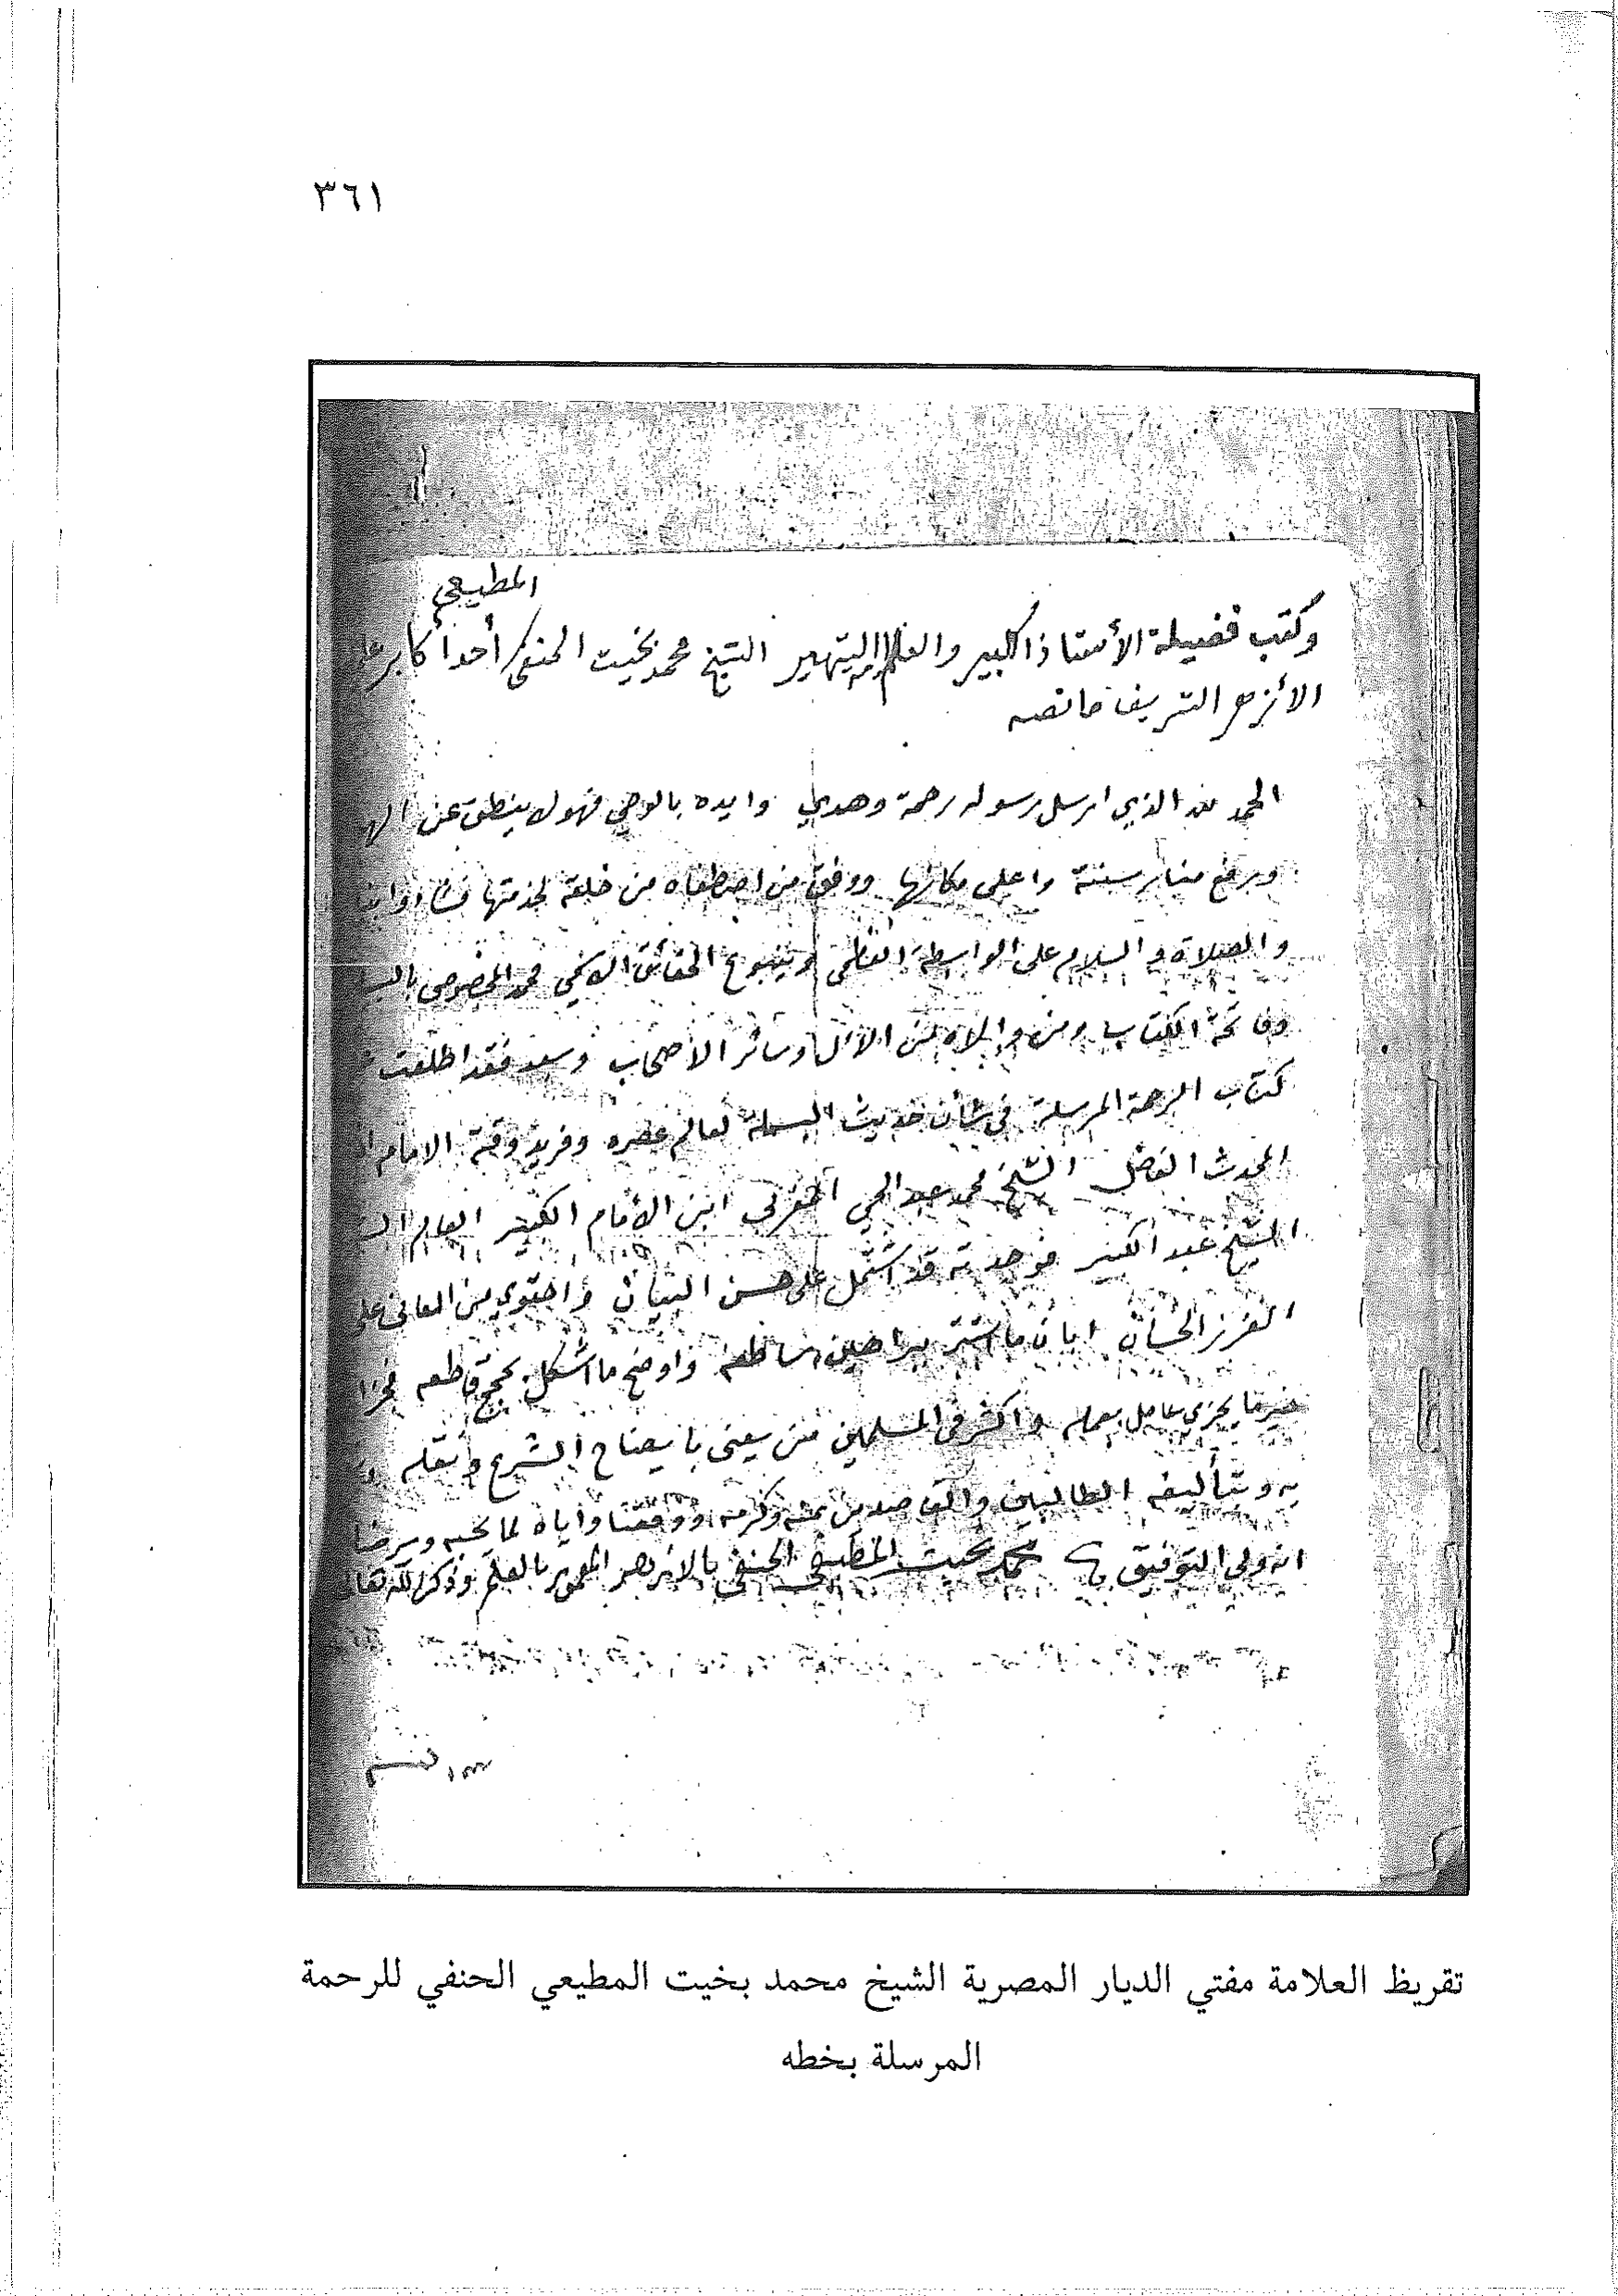 ٣٦١
المطيعي
وكتب فضيلة الأستاذ الكبير والعلامة الشهير الشيخ محمد بخيت الحنفي أحد أكابر
الأزهر الشريف ما نصه
الحمد لله الذي ارسل رسوله رحمة وهدى وايده بالوحي فهو لا ينطق عن
ورفع منار سنته واعلى مكانها ووفق من اصطفاه من خلقه لخدمتها
والصلاة والسلام على الواسطة العظمى وينبوع الحقائق محمد المخصوص
وفاتحة الكتاب ومن والاه من الآل وسائر الاصحاب وبعد فقد اطلعت
كتاب الرحمة المرسلة في شأن حديث البسملة لعالم عصره وفريد وقته الامام
المحدث الفاضل الشيخ محمد عبد الحي المغربي ابن الأمام الكبير العالم
الشيخ عبد الكبير فوجدته قد اشتمل على حسن البيان واحتوى من المعاني على
الغرر الحسان ابان ما استتر ببراهين ساطعه واوضح ما اشكل بحجج قاطعه
خير ما يجزي عامل بعمله واكثر في المسلمين من يعنى بايضاح الشرع ونقله
به وبتأليفه الطالبين والقاصدين بمنه وكرمه ووفقنا واياه لما يحبه
انه ولي التوفيق محمد بخيت المطيعي الحنفي بالازهر المعمور بالعلم وذكر الله تعالى
تقريظ العلامة مفتي الديار المصرية الشيخ محمد بخيت المطيعي الحنفي للرحمة
المرسلة بخطه